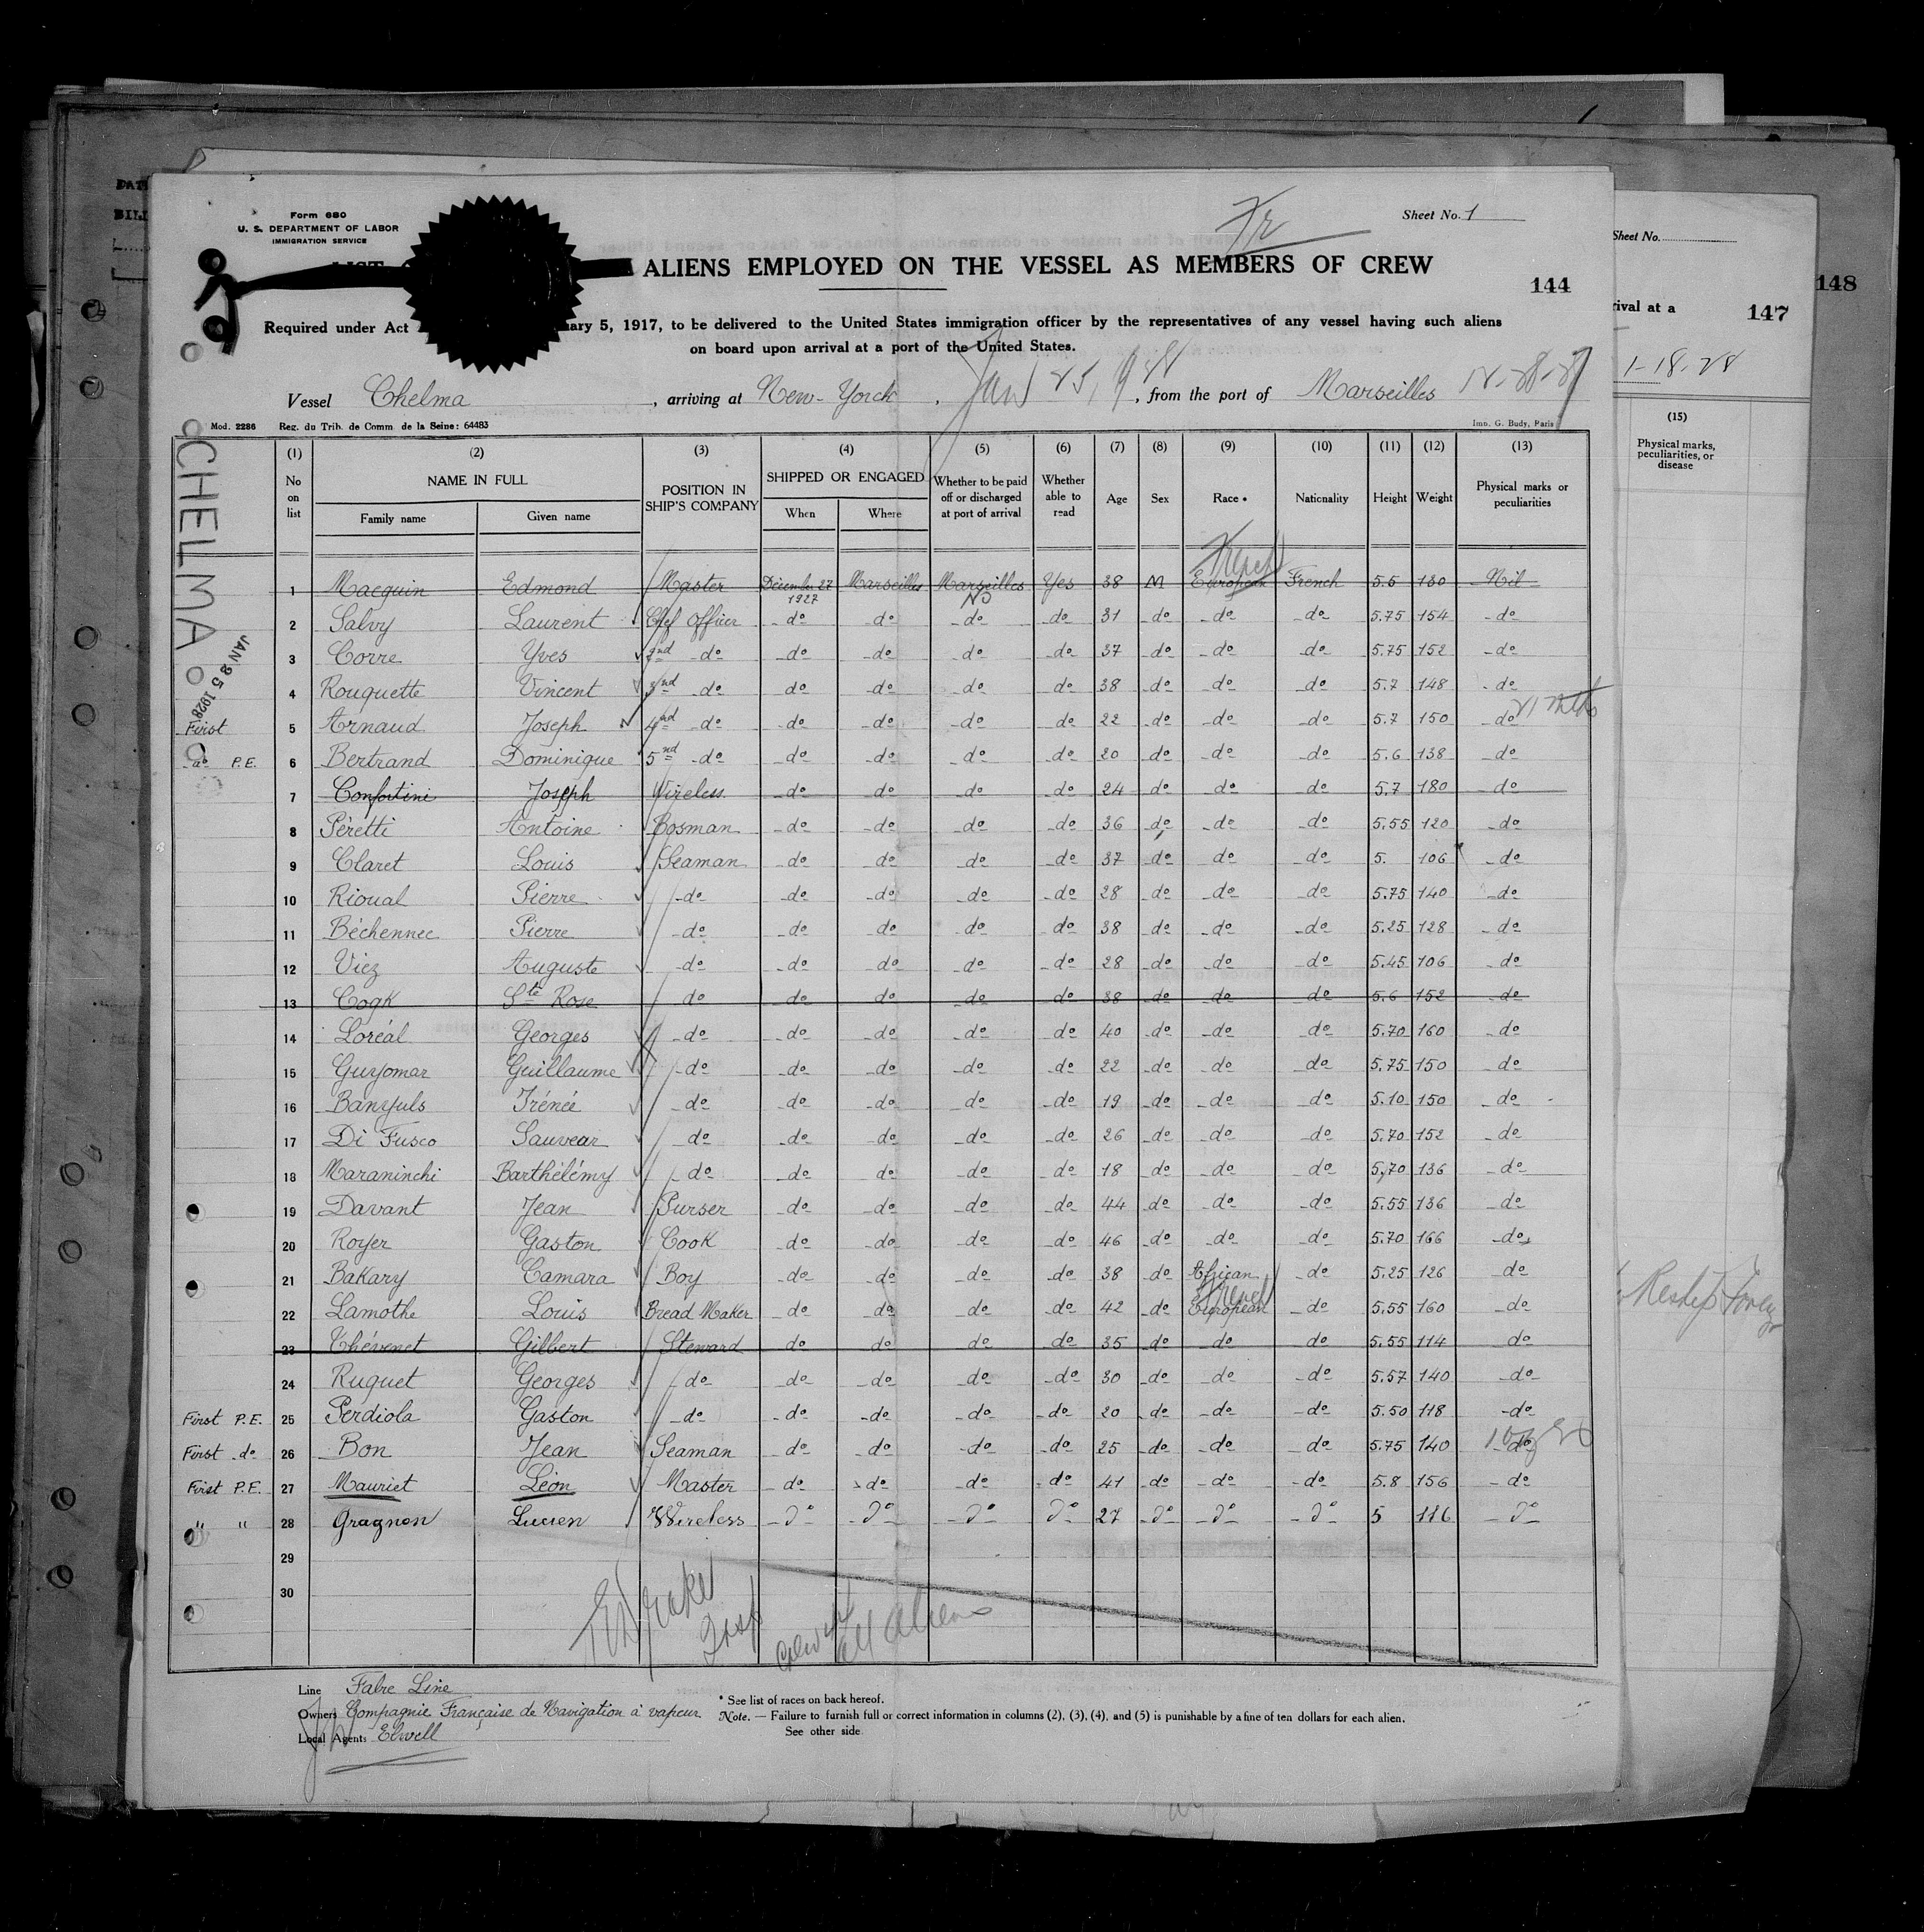 Form 680
U. S. DEPARTMENT OF LABOR
IMMIGRATION SERVICE
Sheet No. 1
Fr
ALIENS EMPLOYED ON THE VESSEL AS MEMBERS OF CREW
144
Required under Act uary 5, 1917, to be delivered to the United States immigration officer by the representatives of any vessel having such aliens
on board upon arrival at a port of the United States.
Vessel Chelma, arriving at New-Yorck, Jan 25, from the port of Marseilles
Mod. 2286 Reg. du Trib. de Comm. de la Seine: 64483 Imp. G. Budy, Paris
CHELMA
JAN 25 1928
(1) (2) (3) (4) (5) (6) (7) (8) (9) (10) (11) (12) (13)
No on list NAME IN FULL Family name Given name POSITION IN SHIP'S COMPANY SHIPPED OR ENGAGED When Where Whether to be paid off or discharged at port of arrival Whether able to read Age Sex Race * Nationality Height Weight Physical marks or peculiarities
French
1 Macquin Edmond Master Décember 27 1927 Marseilles Marseilles No Yes 38 M European French 5.5 130 Nil
2 Salvy Laurent Chef Officer do do do do 31 do do do 5.75 154 do
3 Corre Yves 2nd do do do do do 37 do do do 5.75 152 do
4 Rouquette Vincent 3nd do do do do do 38 do do do 5.7 148 do
First 5 Arnaud Joseph 4nd do do do do do 22 do do do 5.7 150 do
do P.E. 6 Bertrand Dominique 5nd do do do do do 20 do do do 5.6 138 do
7 Confortini Joseph Wireless do do do do 24 do do do 5.7 180 do
8 Péretti Antoine Bosman do do do do 36 do do do 5.55 120 do
9 Claret Louis Seaman do do do do 37 do do do 5. 106 do
10 Rioual Pierre do do do do do 28 do do do 5.75 140 do
11 Béchennec Pierre do do do do do 38 do do do 5.25 128 do
12 Viez Auguste do do do do do 28 do do do 5.45 106 do
13 Cogk Ste Rose do do do do do 38 do do do 5.6 152 do
14 Loréal Georges do do do do do 40 do do do 5.70 160 do
15 Guyomar Guillaume do do do do do 22 do do do 5.75 150 do
16 Banyuls Irénée do do do do do 19 do do do 5.10 150 do
17 Di Fusco Sauvear do do do do do 26 do do do 5.70 152 do
18 Maraninchi Barthélémy do do do do do 18 do do do 5,70 136 do
19 Davant Jean Purser do do do do 44 do do do 5.55 136 do
20 Royer Gaston Cook do do do do 46 do do do 5.70 166 do
21 Bakary Camara Boy do do do do 38 do African do 5.25 126 do
French
22 Lamothe Louis Bread Maker do do do do 42 do European do 5.55 160 do
23 Thévenet Gilbert Steward do do do do 35 do do do 5.55 114 do
24 Ruquet Georges do do do do do 30 do do do 5.57 140 do
First P.E. 25 Perdiola Gaston do do do do do 20 do do do 5.50 118 do
First do 26 Bon Jean Seaman do do do do 25 do do do 5.75 140 do
First P.E. 27 Mauriet Léon Master do do do do 41 do do do 5.8 156 do
" " 28 Gragnon Lucien Wireless do do do do 27 do do do 5 116 do
29
30
all Aliens
Line Fabre Line
Owners Compagnie Française de Navigation à vapeur
Local Agents Elwell
* See list of races on back hereof.
Note. — Failure to furnish full or correct information in columns (2), (3), (4), and (5) is punishable by a fine of ten dollars for each alien.
See other side
Sheet No.
148
rival at a 147
1-18-28
(15)
Physical marks,
peculiarities, or
disease